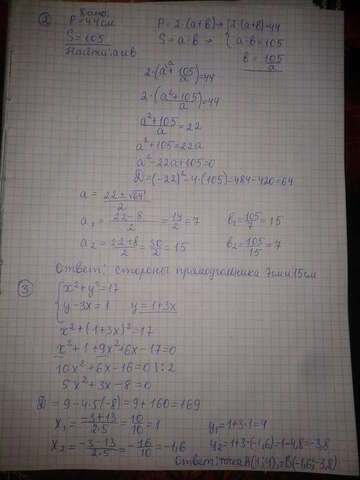 ② Дано:
P=44см
S=105
Найти: a и b
P=2·(a+b) → {2·(a+b)=44
S=a·b → {a·b=105
b=105/a
2·(a+105/a)=44
2·(a²+105/a)=44
a²+105/a=22
a²+105=22a
a²-22a+105=0
D=(-22)²-4·(105)=484-420=64
a=22±√64/2
a₁=22-8/2=14/2=7 b₁=105/7=15
a₂=22+8/2=30/2=15 b₂=105/15=7
Ответ: стороны прямоугольника 7см и 15см
③ {x²+y²=17
{y-3x=1 y=1+3x
x²+(1+3x)²=17
x²+1+9x²+6x-17=0
10x²+6x-16=0 |:2
5x²+3x-8=0
D=9-4·5·(-8)=9+160=169
x₁=-3+13/2·5=10/10=1 y₁=1+3·1=4
x₂=-3-13/2·5=-16/10=-1,6 y₂=1+3·(-1,6)=1-4,8=-3,8
Ответ: точка A(1;4), B(-1,6;-3,8)